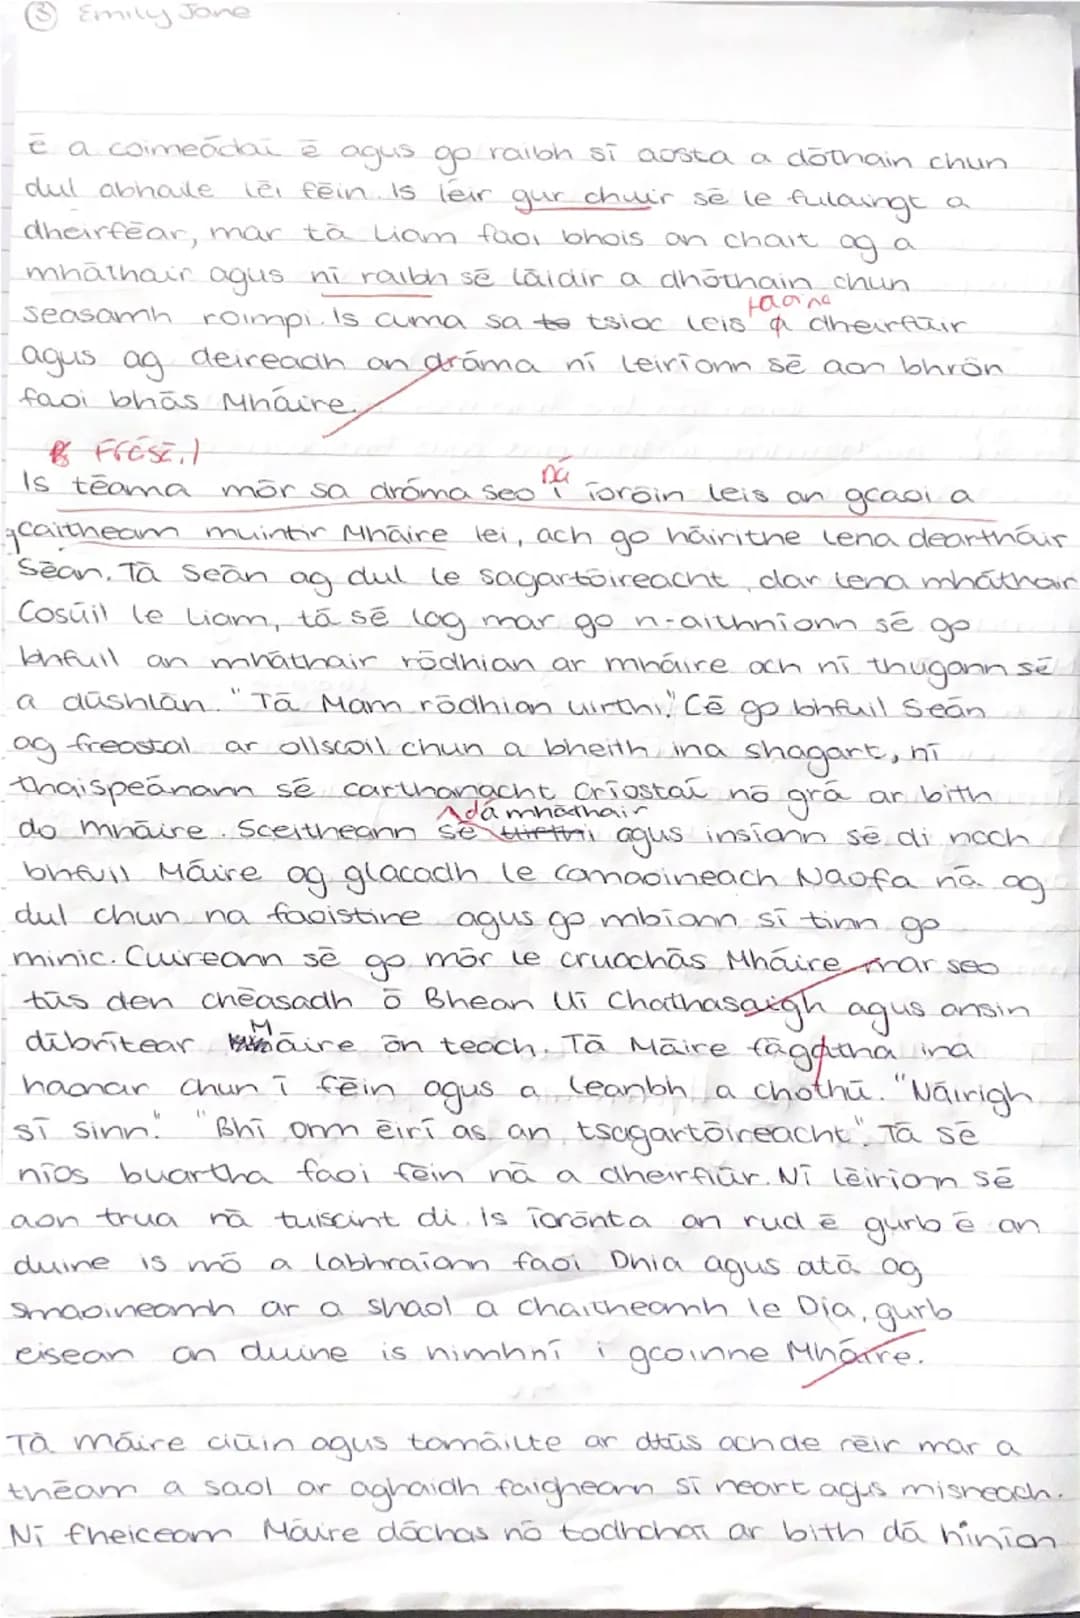 ③ Emily Jane
é a coimeádaí é agus go raibh sí aosta a dóthain chun
dul abhaile léi féin. Is léir gur chuir sé le fulaingt a
dheirféar, mar tá Liam faoi bhois an chait ag a
mháthair agus ní raibh sé láidir a dhóthain chun
seasamh roimpi. Is cuma sa to tsioc leis a dheirfiúir
agus ag deireadh an dráma ní leiríonn sé aon bhrón
faoi bhás Mháire.
Frésé.1
ná
Is téama mór sa dráma seo í íoróin leis an gcaoi a
gcaitheam muintir Mháire lei, ach go háirithe lena deartháir
Séan. Tá Seán ag dul le sagartóireacht, dar lena mháthair
Cosúil le Liam, tá sé lag mar go n-aithníonn sé go
bhfuil an mháthair ródhian ar mháire ach ní thugann sé
a dúshlán. "Tá Mam ródhian uirthi." Cé go bhfuil Seán
ag freastal ar ollscoil chun a bheith ina shagart, ní
thaispeánann sé carthanacht Críostaí nó grá ar bith
dá mháthair
do mháire. Sceitheann sé uirthi agus insíonn sé di nach
bhfuil Máire ag glacadh le Camaoineach Naofa ná ag
dul chun na faoistine agus go mbíonn sí tinn go
minic. Cuireann sé go mór le cruachás Mháire mar seo
tús den chéasadh ó Bhean Uí Chathasaigh agus ansin
díbrítear Máire ón teach. Tá Máire fágatha ina
haonar chun í féin agus a leanbh a chothú. "Náirigh
sí sinn." "Bhí orm éirí as an tsagartóireacht". Tá sé
níos buartha faoi féin ná a dheirfiúr. Ní léiríonn sé
aon trua ná tuiscint di. Is íorónta an rud é gurb é an
duine is mó a labhraíonn faoi Dhia agus atá ag
smaoineamh ar a shaol a chaitheamh le Dia, gurb
eisean an duine is nimhní i gcoinne Mháire.
Tá máire ciúin agus tomáilte ar dtús ach de réir mar a
théam a saol ar aghaidh faigheann sí neart agus misneach.
Ní fheiceam Máire dóchas nó todhchaí ar bith dá hiníon